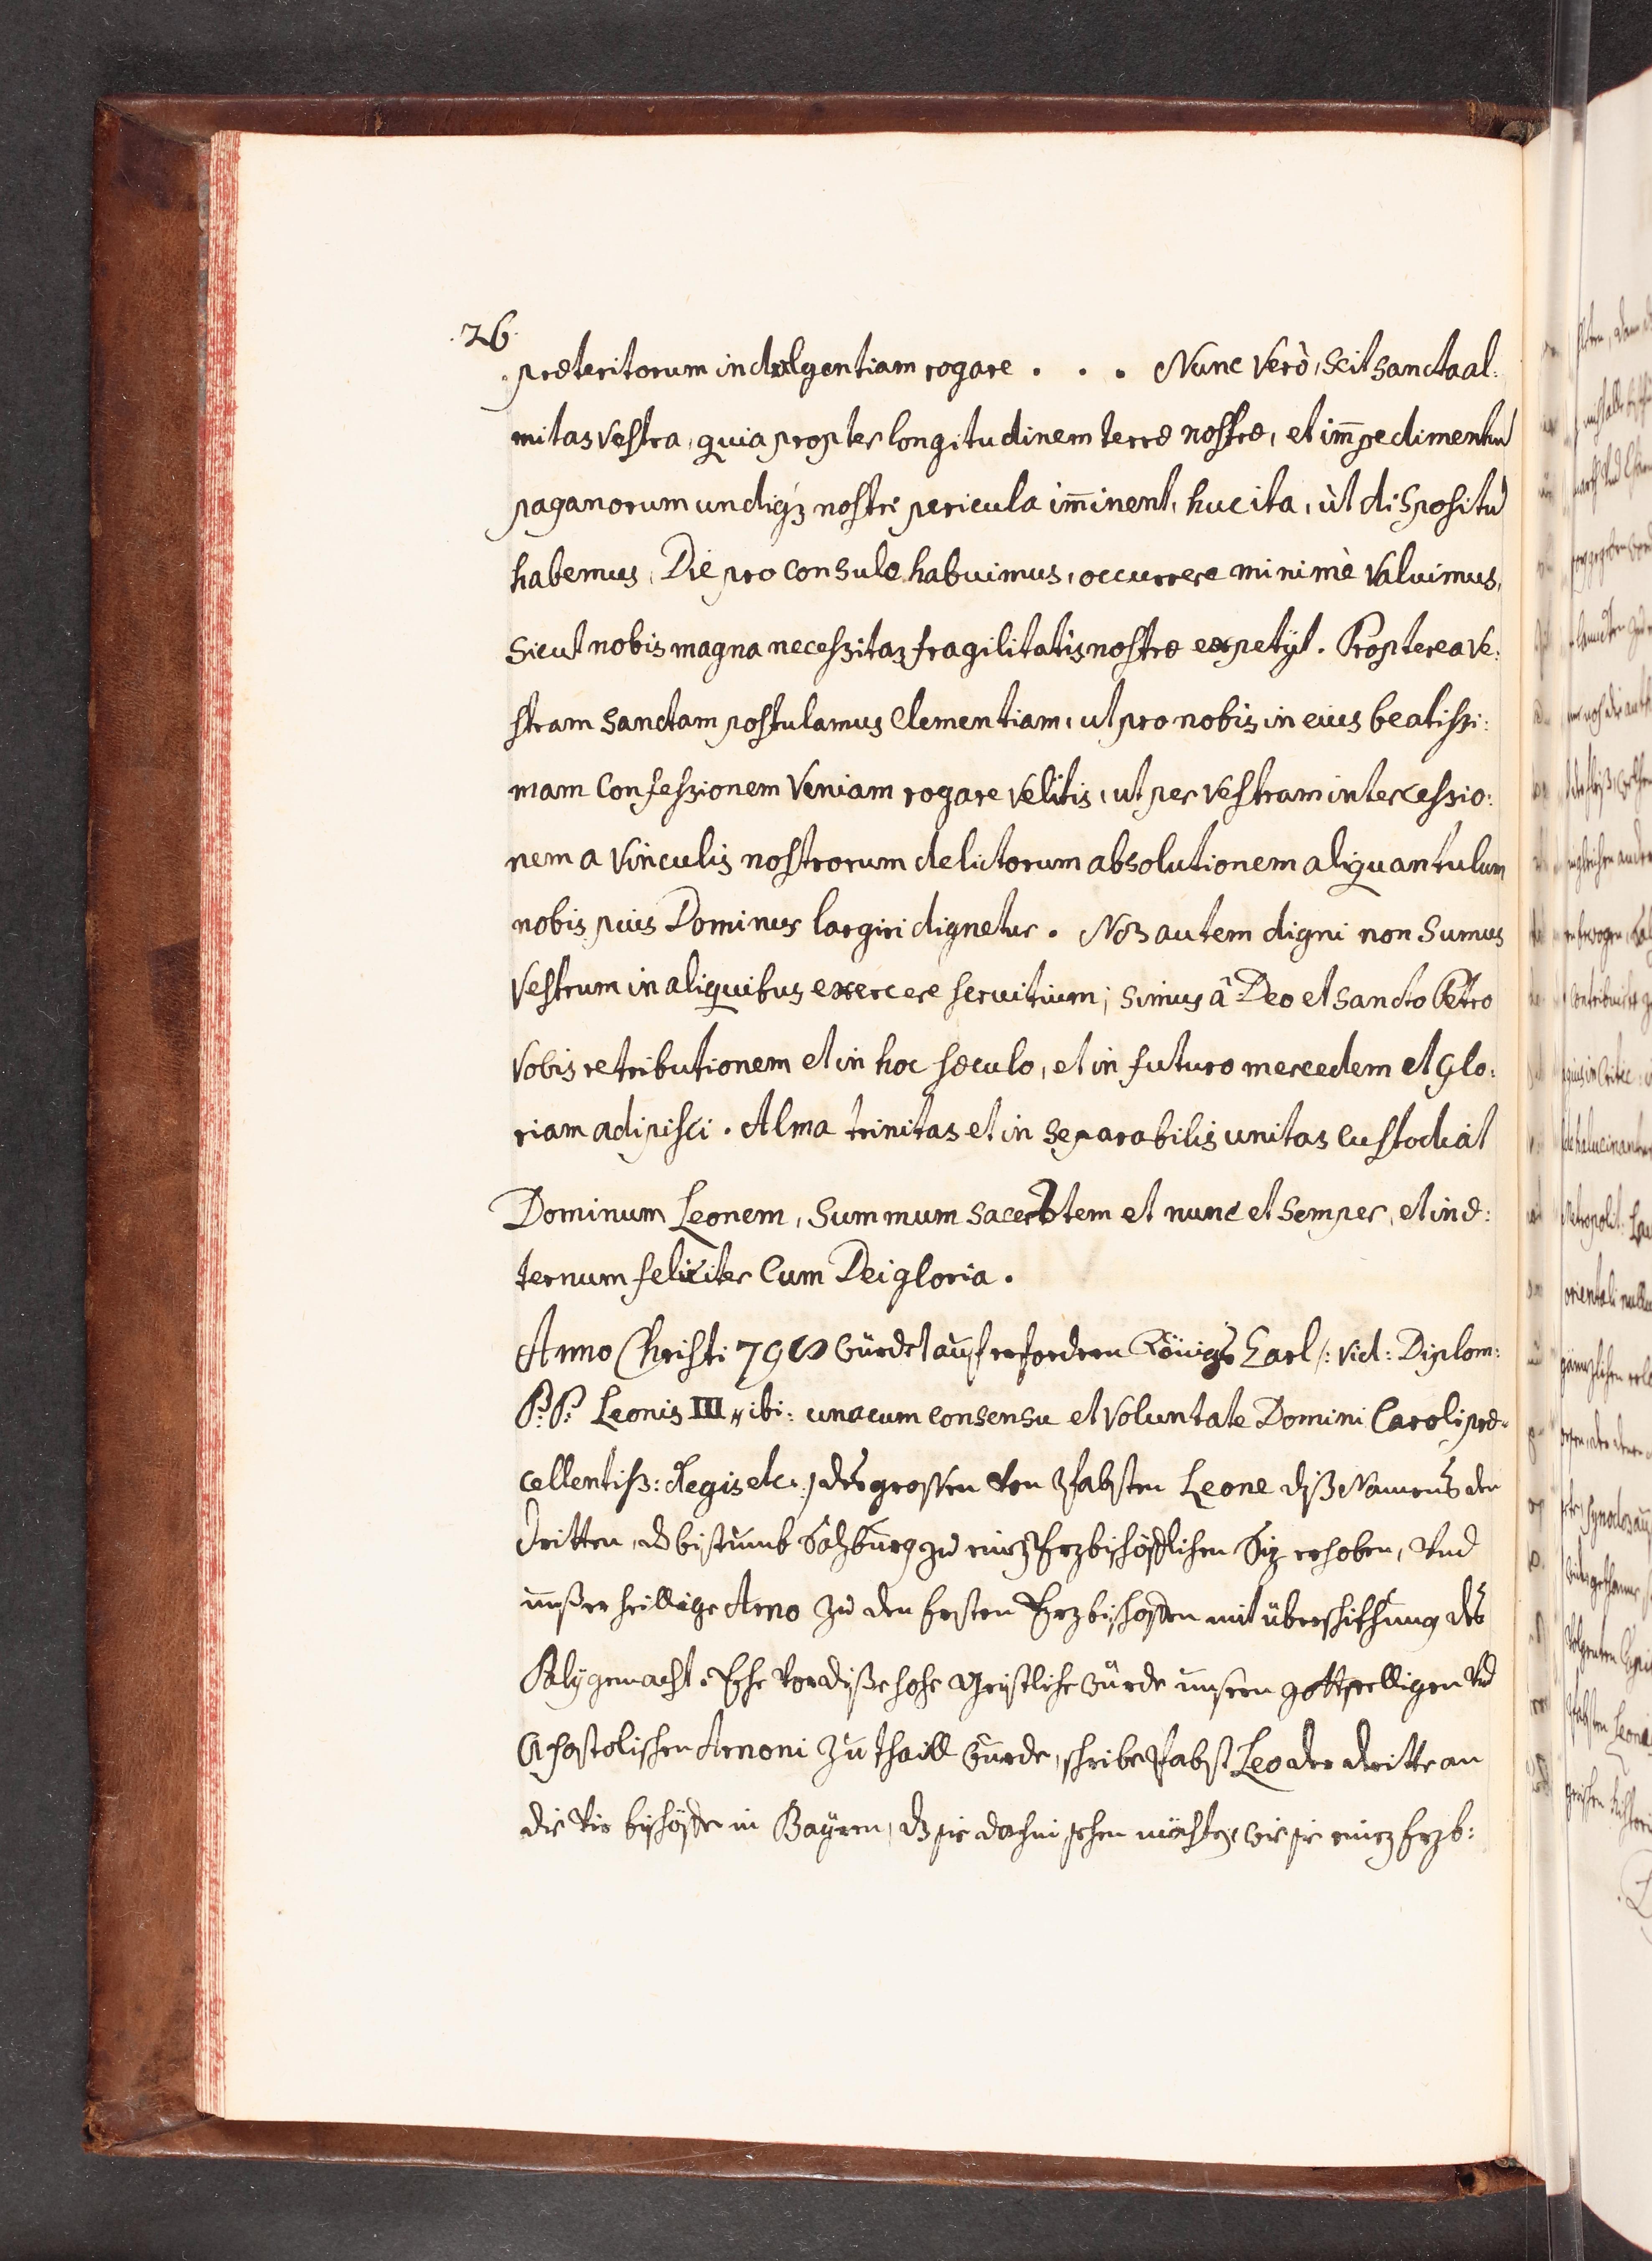 26.
præteritorum indulgentiam rogare . . . Nunc Verò, scit sancta al:
mitas Vestra, quia propter longitudinem terræ nostræ, et im̄pedimentū
paganorum undiq́3 nostri pericula im̄inent, huc ita, ùt dispositū
habemus, Die pro consule habuimus, occurrere minimè Valuimus,
Sicut nobis magna necessitas fragilitatis nostræ expetÿt. Propterea Ve:
stram Sanctam postulamus Clementiam, ut pro nobis in eius beatissi:
mam Confessionem Veniam rogare Velitis, ut per Vestram intercessio:
nem a Vinculis nostrorum delictorum absolutionem aliquantulum
nobis pius Dominus largiri dignetur. Nos autem digni non Sumus
Vestrum in aliquibus exercere servitium; simus â Deo et Sancto Petro
Vobis retributionem et in hoc sæculo, et in futuro mercedem et Glo:
riam adipisci. Alma trinitas et in Separabilis unitas Custodiat
Dominum Leonem, Summum Sacerdotem et nunc et Semper, et in æ:
ternum feliciter Cum Dei gloria.
Anno Christi 798 würdet auf erfordern Königs Carl /: vid: Diplom:
P:P: Leonis III ibi: una cum consensu et Voluntate Domini Caroli præ:
cellentiss: Regis etc: / des grossen Von Pfabsten Leone diß Namens den
dritten, ds bistumb Salzburg zu einez Erzbischöfflichen Siz erhoben, Vnd
unßer heillige Arno zu den Ersten Erzbischoffen mit überschikhung des
Palÿ gemacht. Ehe Vor diße hohe Geistliche würde unsern gottseelligen Vnd
Apostolischen Arnoni zu thaill wurde, schribe Pfabst Leo der dritte an
die Vir bischöffe in Baÿren, ds sie dahin sehen möchten, wie sie einez Erzb: